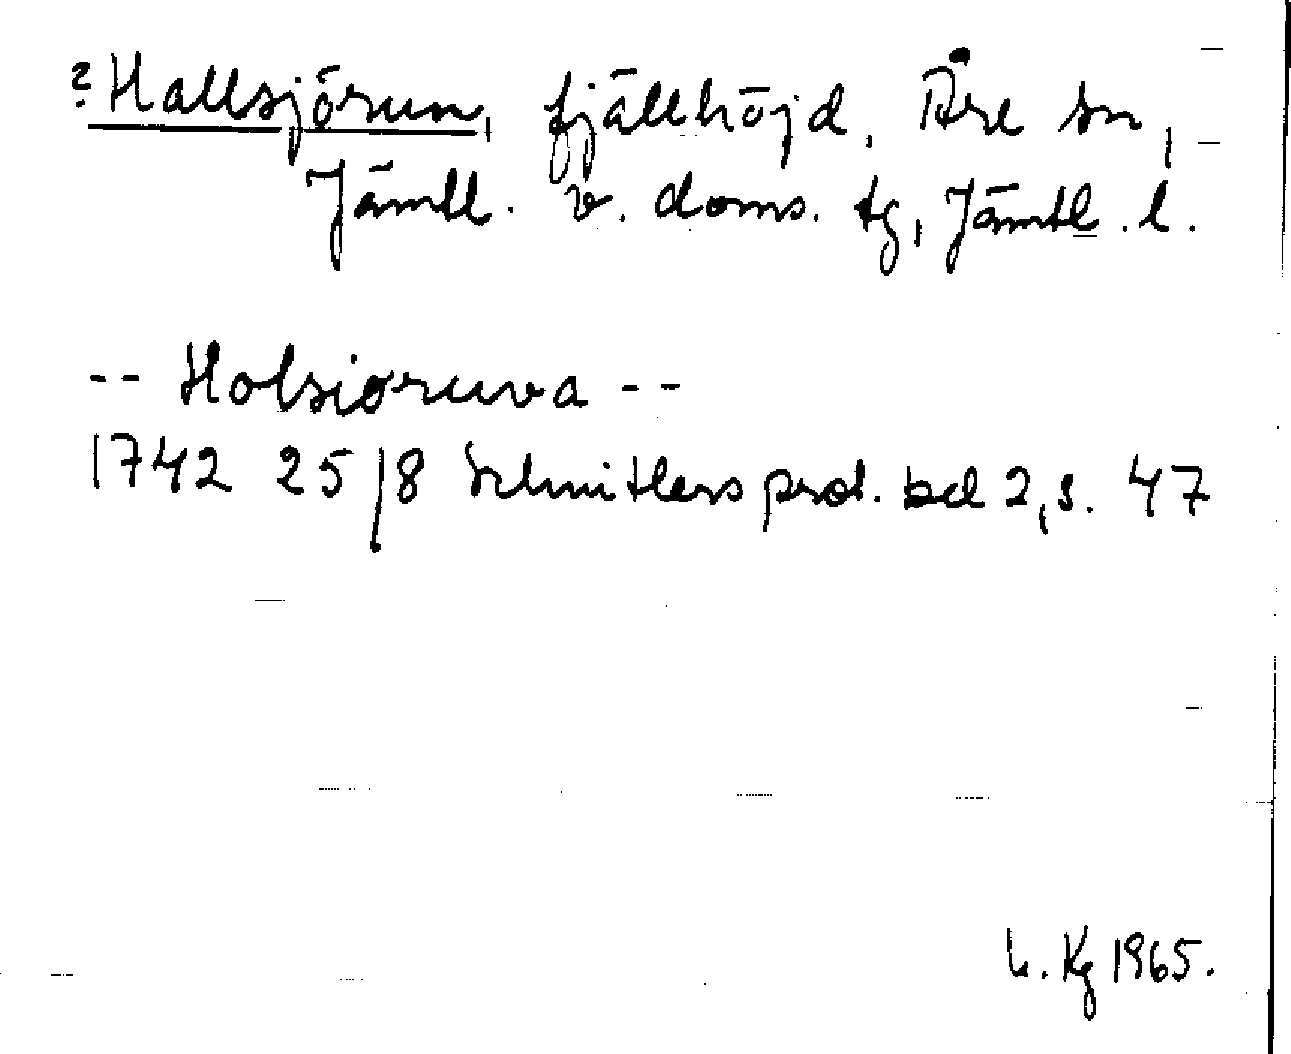 ? Hallsjörun, fjällhöjd, Åre sn,
Jämtl. v. doms. tg, Jämtl. l.
-- Holsiøruva --
1742 25/8 Schnitlers prot. bd 2, s. 47
L. Kg 1965.